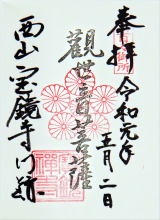 奉拝
令和元年
五月二日
觀世音菩薩
西山宝鏡寺門跡